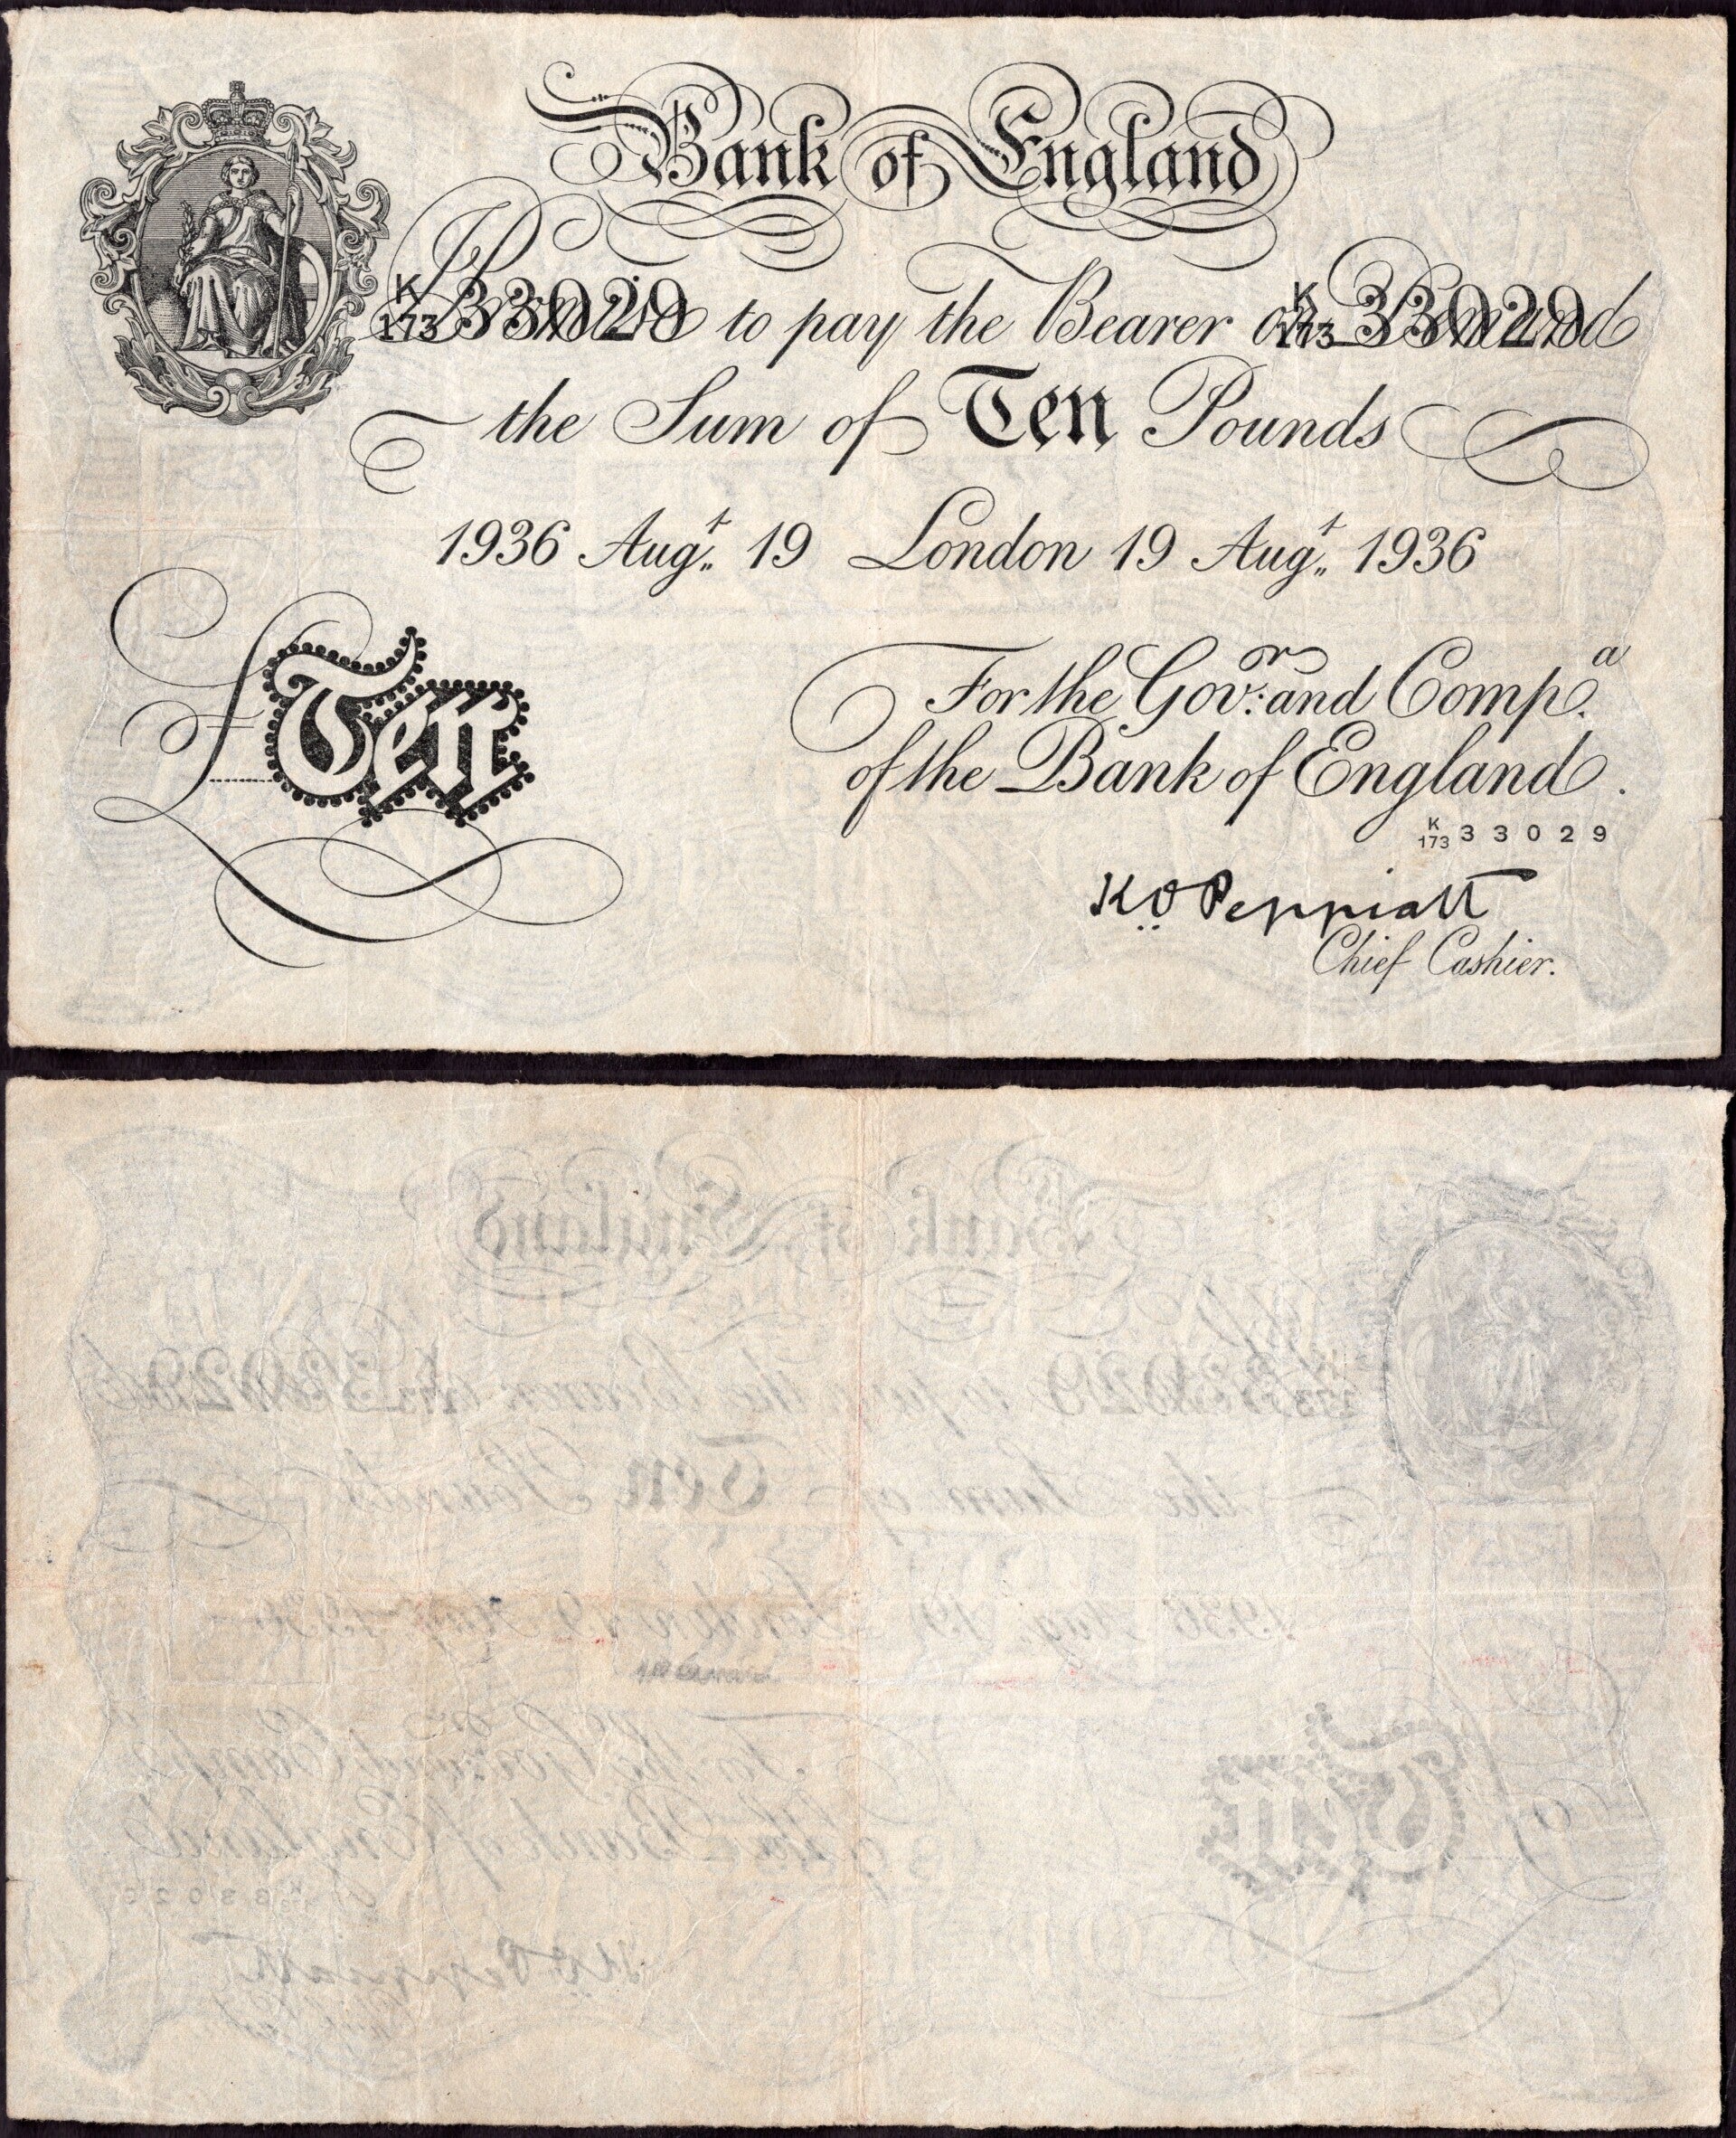 Bank of England
K 173 33029 Promise to pay the Bearer on Demand K 173 33029
the Sum of Ten Pounds
1936 Augt. 19 London 19 Augt. 1936
£ Ten
For the Govr. and Compa.
of the Bank of England.
K 173 33029
K O Peppiatt
Chief Cashier.